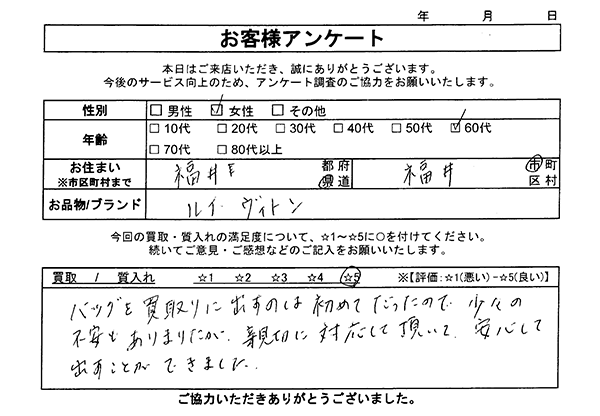 年 月 日
お客様アンケート
本日はご来店いただき、誠にありがとうございます。
今後のサービス向上のため、アンケート調査のご協力をお願いいたします。
性別 □男性 ☑女性 □その他
年齢 □10代 □20代 □30代 □40代 □50代 ☑60代
□70代 □80代以上
お住まい 福井 都府 福井 市町
※市区町村まで 県道 区村
お品物/ブランド ルイ・ヴィトン
今回の買取・質入れの満足度について、☆1～☆5に○を付けてください。
続いてご意見・ご感想などのご記入をお願いします。
買取 / 質入れ ☆1 ☆2 ☆3 ☆4 ☆5 ※【評価:☆1(悪い)-☆5(良い)】
バッグを買取りに出すのは初めてだったので、少々の
不安もありましたが、親切に対応して頂いて、安心して
出すことができました。
ご協力いただきありがとうございました。